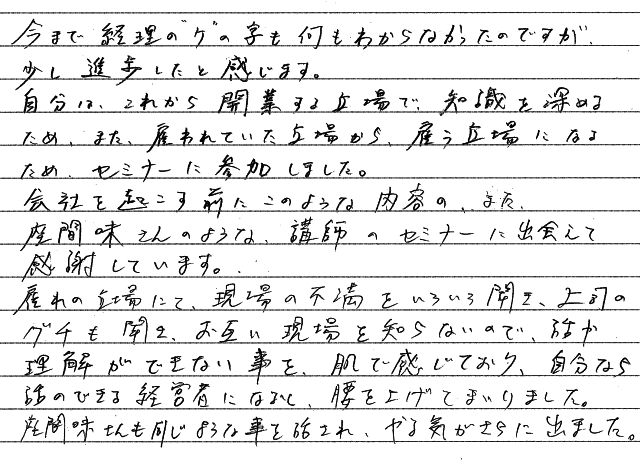 今まで"経理の"ケ"の字も何もわからなかったのですが、
少し進歩したと感じます。
自分は、これから開業する立場で、知識を深める
ため、また、雇われていた立場から、雇う立場になる
ため、セミナーに参加しました。
会社を起こす前にこのような内容の、また、
座間味さんのような、講師のセミナーに出会えて
感謝しています。
雇れの立場にて、現場の不満をいろいろ聞き、上司の
グチも聞き、お互い現場を知らないので、話が
理解ができない事を、肌で感じており、自分なら
話のできる経営者になると、腰を上げてまいりました。
座間味さんも同じような事を話され、やる気がさらに出ました。